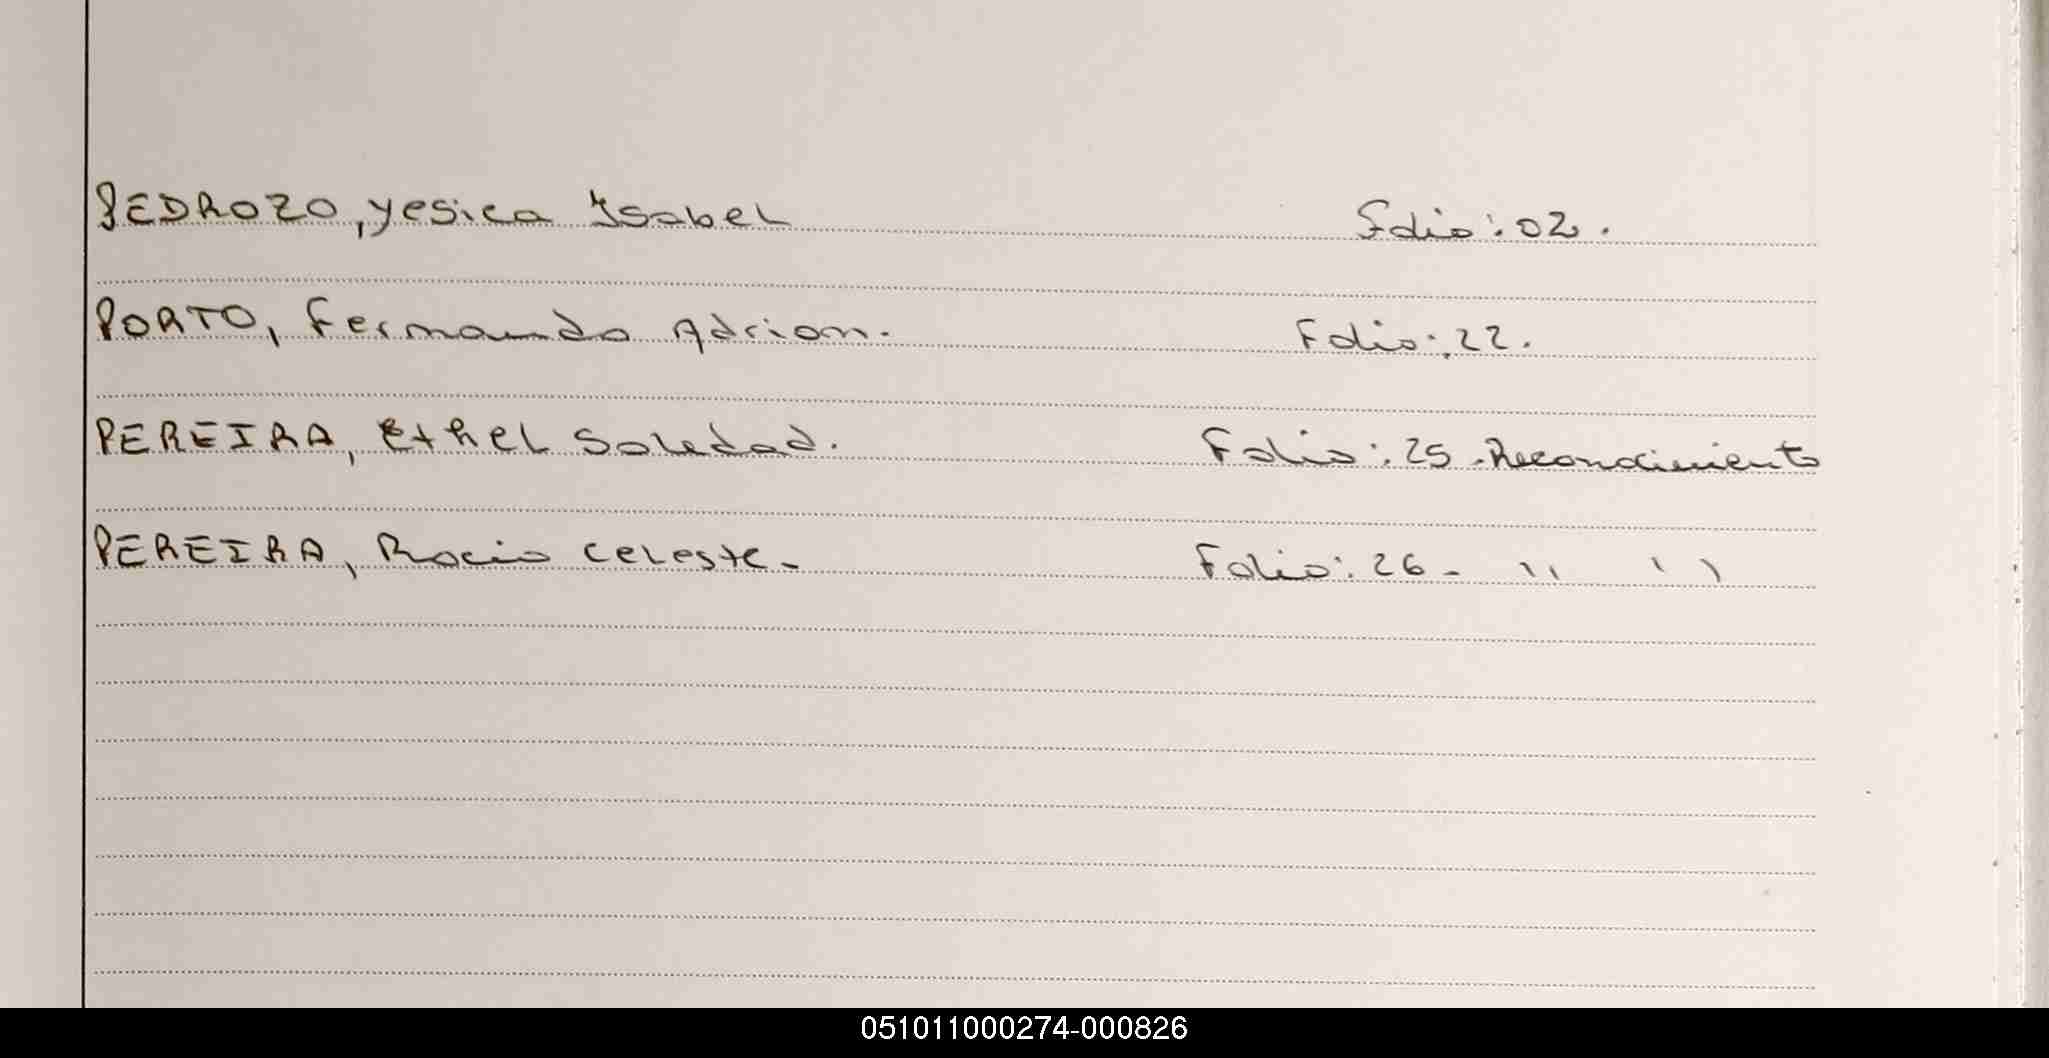 PEDROZO, Yesica Ysabel Folio: 02.
PORTO, Fernando Adrian. Folio: 22.
PEREIRA, Ethel Soledad. Folio: 25.-Reconocimiento
PEREIRA, Rocio Celeste.- Folio: 26.- '' ''
051011000274-000826